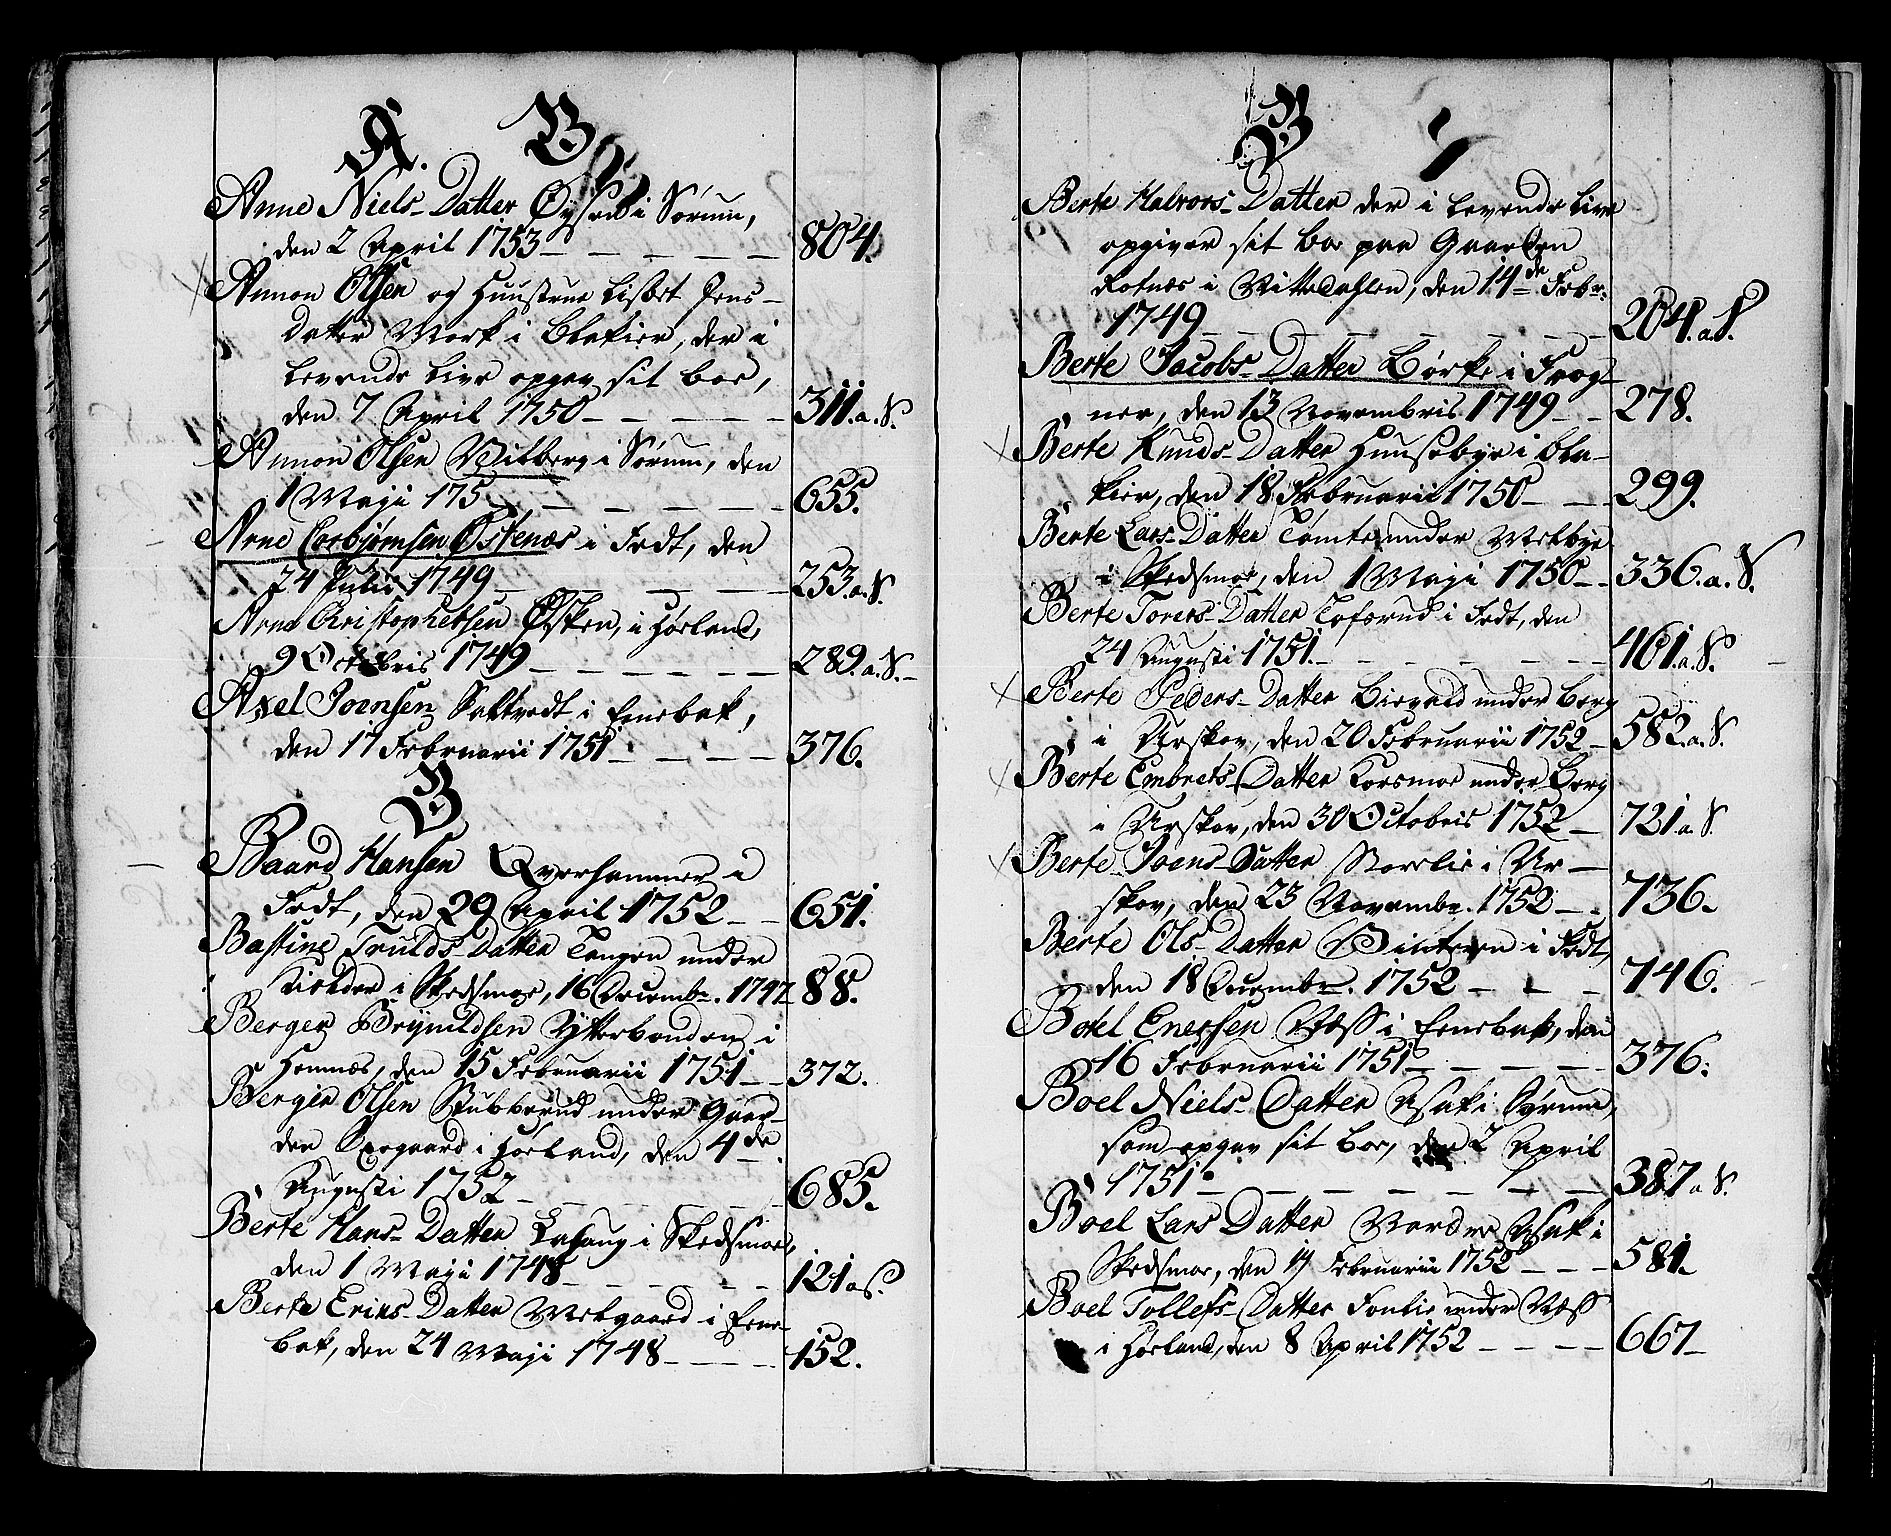 A. B
Anne Niels-Datter Øyseri i Sørum,
den 2 April 1753 - - - - - 804.
Amon Olsen og Huustrue Lisbet Jens-
datter Mork i Blakier, der i
levende Live opgav sit boe,
den 7 April 1750 - - - - - 311.a.S.
Amon Olsen Vilberg i Sørum, den
1 Maji 175 - - - - - 655.
Arne Torbjørnsen Østenæs i Fedt, den
24 Julii 1749 - - - - 253.a.S.
Arne Christophersen Øsken, i Høland,
9 Octobris 1749 - - - - - 289.a.S.
Axel Joensen Saltvedt i Enebak,
den 17 Februarii 1751 - - - - 376.
B
Baard Hansen Qverhammer i
Fedt, den 29 April 1752 - - 651.
Bastine Trulds-Datter Tangen under
Kielder i Skedsmoe, 16 Decembr. 1747 88.
Berger Brynildsen Ytterbonden i
Hemnæs, den 15 Februarii 1751 - - 372.
Berger Olsen Stubberud under Gaar-
den Opegaard i Høland, den 4de
Augusti 1752 - - - - - 685.
Berte Hans-Datter Lasaug i Skedsmoe,
den 1 Maji 1748 - - - - - 121 a S.
Berte Erics-Datter Melgaard i Ene-
bak, den 24 Maji 1748 - - - - 152.
B
Berte Halvors-Datter der i levende Live
opgiver sit boe paa Gaarden
Rotnæs i Nittedahlen, den 14de Febr:
1749 - - - - - - 204.a.S.
Berte Jacobs-Datter Børke i Frog-
ner, den 13 Novembris 1749 - - 278.
Berte Knuds-Datter Huusebye i Bla-
kier, den 18 Februarii 1750 - - - 299.
Berte Lars-Datter Tomte under Melbye
i Skedsmoe, den 1 Maji 1750 - - 336.a.S.
Berte Torers-Datter Toserud i Fedt, den
24 Augusti 1751. - - - - - 461.a.S.
Berte Peders-Datter Bievald under Berg
i Urskov, den 20 Februarii 1752 - 582.a.S.
Berte Embrets-Datter Korsmoe under Berg
i Urskov, den 30 Octobris 1752 - 721 a S.
Berte Joens-Datter Storelie i Ur-
skov, den 23 Novembr. 1752 - - 736.
Berte Ols-Datter i Fedt,
den 18 Decembr. 1752 - - - 746.
Botel Enersen Næss i Enebak, den
16 Februarii 1751 - - - - - 376.
Boel Niels-Datter Asak i Sørum,
som opgav sit boe, den 2 April
1751 - - - - - - 387 a S.
Boel Lars Datter Nordre Asak i
Skedsmoe, den 19 Februarii 1752 - - - 581.
Boel Tollefs-Datter Fonlie under Næss
i Høland, den 8 April 1752 - - - - 667